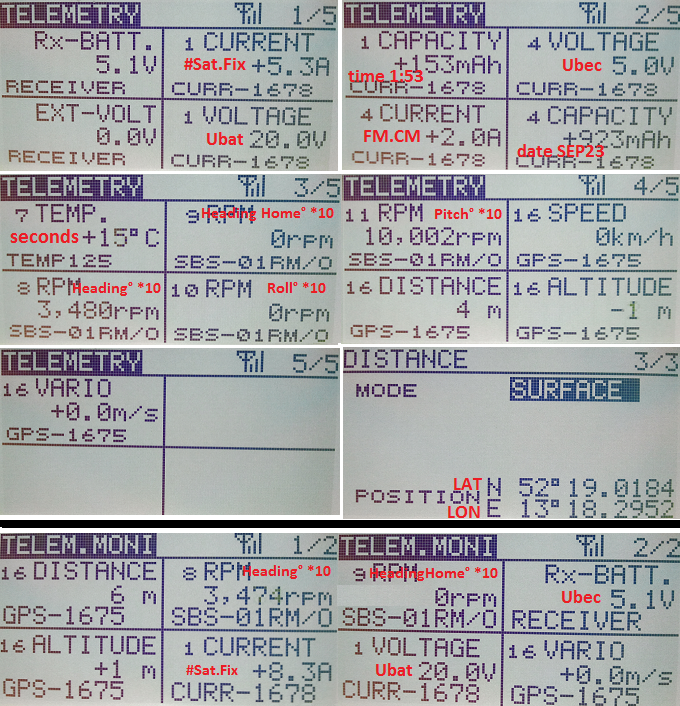 TELEMETRY 1/5
Rx-BATT.
5.1V
RECEIVER
1 CURRENT
#Sat.Fix +5.3A
CURR-1678
EXT-VOLT
0.0V
RECEIVER
1 VOLTAGE
Ubat 20.0V
CURR-1678
TELEMETRY 2/5
1 CAPACITY
+153mAh
time 1:53
CURR-1678
4 VOLTAGE
Ubec 5.0V
CURR-1678
4 CURRENT
FM.CM +2.0A
CURR-1678
4 CAPACITY
+923mAh
date SEP23
CURR-1678
TELEMETRY 3/5
7 TEMP.
seconds +15°C
TEMP125
9 RPM Heading Home° *10
0rpm
SBS-01RM/O
8 RPM Heading° *10
3,480rpm
SBS-01RM/O
10 RPM Roll° *10
0rpm
SBS-01RM/O
TELEMETRY 4/5
11 RPM Pitch° *10
10,002rpm
SBS-01RM/O
16 SPEED
0km/h
GPS-1675
16 DISTANCE
4 m
GPS-1675
16 ALTITUDE
-1 m
GPS-1675
TELEMETRY 5/5
16 VARIO
+0.0m/s
GPS-1675
DISTANCE 3/3
MODE SURFACE
POSITION
LAT N 52° 19.0184
LON E 13° 18.2952
TELEM.MONI 1/2
16 DISTANCE
6 m
GPS-1675
8 RPM Heading° *10
3,474rpm
SBS-01RM/O
16 ALTITUDE
+1 m
GPS-1675
1 CURRENT
#Sat.Fix +8.3A
CURR-1678
TELEM.MONI 2/2
9 RPM HeadingHome° *10
0rpm
SBS-01RM/O
Rx-BATT.
Ubec 5.1V
RECEIVER
1 VOLTAGE
Ubat 20.0V
CURR-1678
16 VARIO
+0.0m/s
GPS-1675